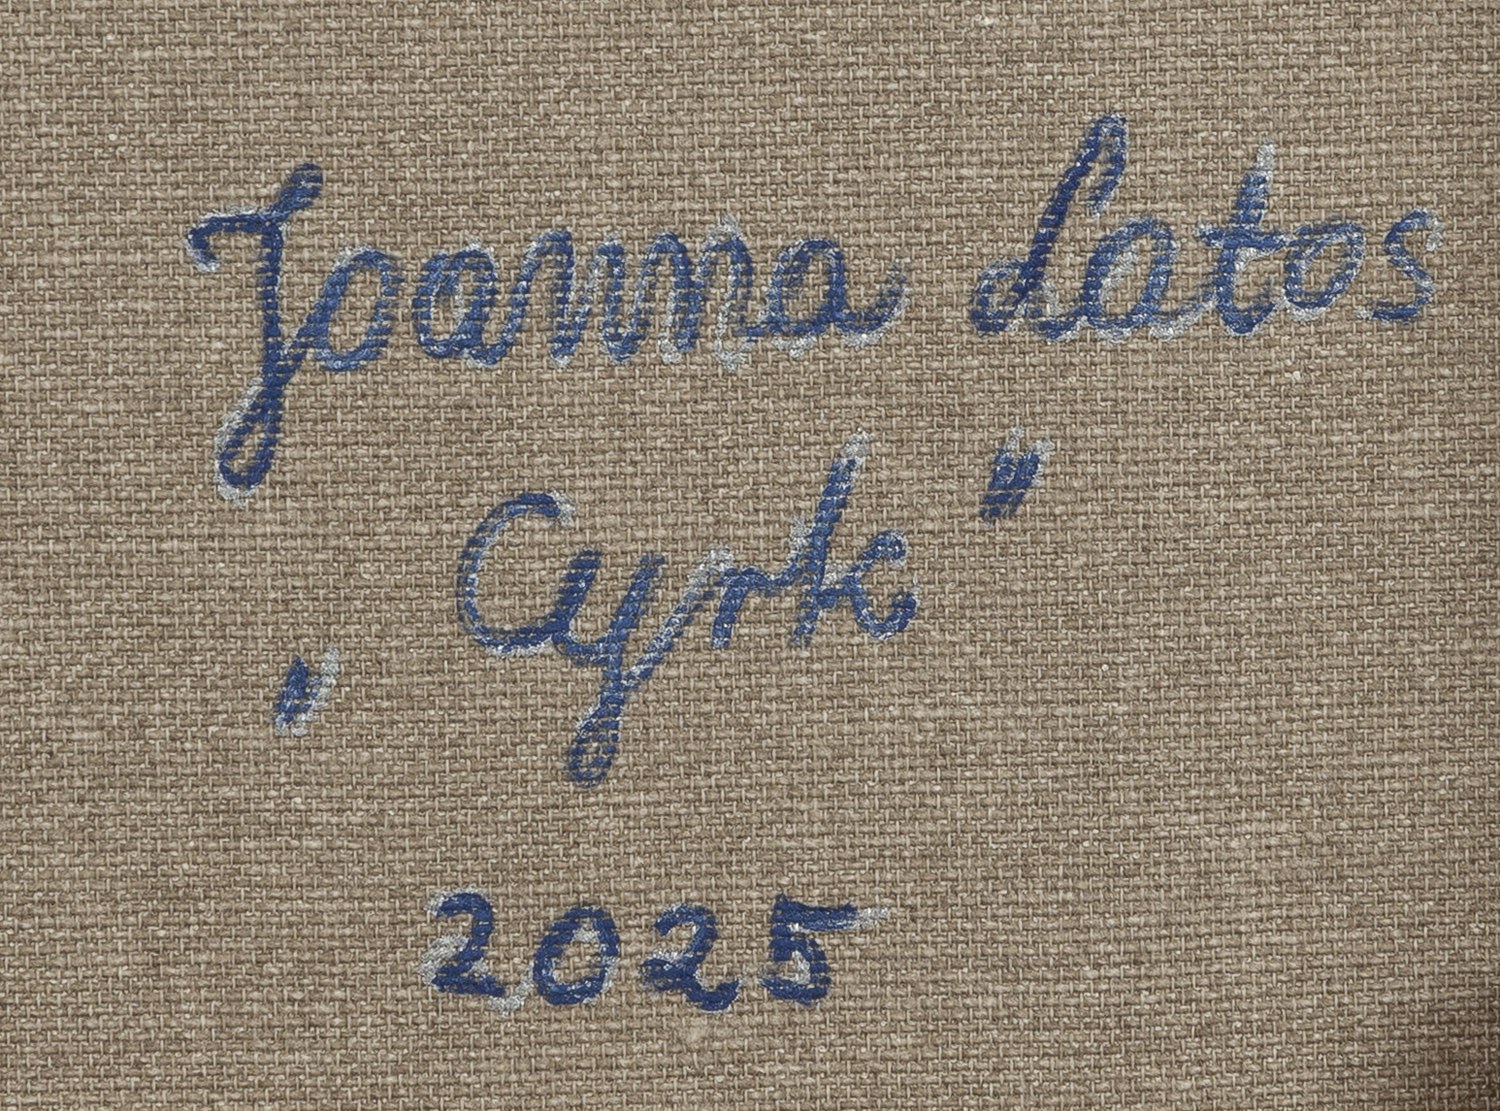 Joanna Latos
„Cyrk"
2025